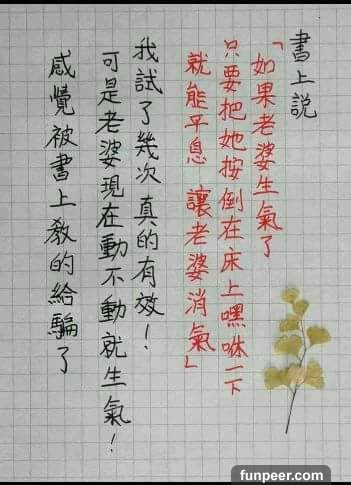 書上說
「如果老婆生氣了
只要把她按倒在床上嘿咻一下
就能平息 讓老婆消氣」
我試了幾次真的有效！
可是老婆現在動不動就生氣！
感覺被書上教的給騙了
funpeer.com